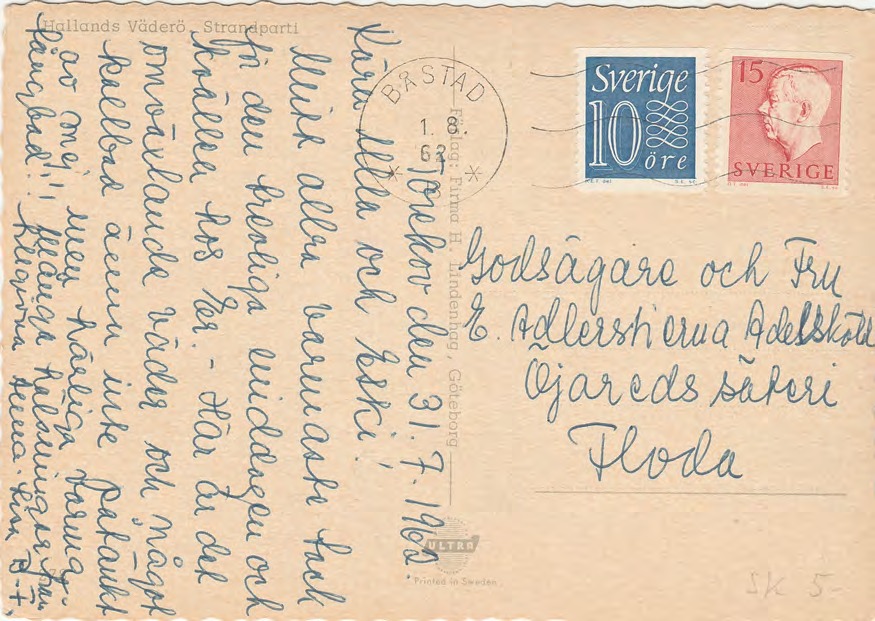 Hallands Väderö. Strandparti
BÅSTAD
1. 8.
62
Sverige
10
öre
15
SVERIGE
Förlag: Firma H. Lindenhag, Göteborg
Torekov den 31. 7. 1962
Kära Ulla och Eski!
Mitt allra varmaste tack
för den trevliga middagen och
kvällen hos Er. - Här är det
omväxlande väder och något
kallbad ännu inte påtänkt
av mej!!! men härliga varma
tångbad!! många hälsningar från
Godsägare och Fru
E. Adlerstierna Adelsköld
Öjareds säteri
Floda
ULTRA
Printed in Sweden
SK 5-